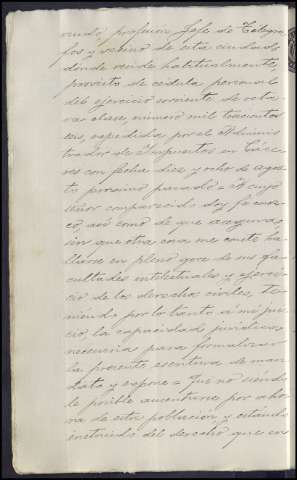 profesión Jefe de Telegra-
fos y vecino de esta ciudad
donde reside habitualmente,
provisto de cédula personal
del ejercicio corriente de octa-
va clase, número mil trescientos
seis, expedida por el Adminis-
trador de Impuestos en Cáce-
res con fecha diez y ocho de agos-
to próximo pasado = A cuyo
señor comparezco doy fe conoz-
co, así como de que asegura,
sin que otra cosa me conste ha-
llarse en pleno goce de sus fa-
cultades intelectuales y ejerci-
cio de los derechos civiles, te-
niendo por lo tanto a mi jui-
cio, la capacidad jurídica
necesaria para formalizar
la presente escritura de man-
dato y expone = Que no siendo-
le posible ausentarse por aho-
ra de esta población y estando
instruido del derecho que en